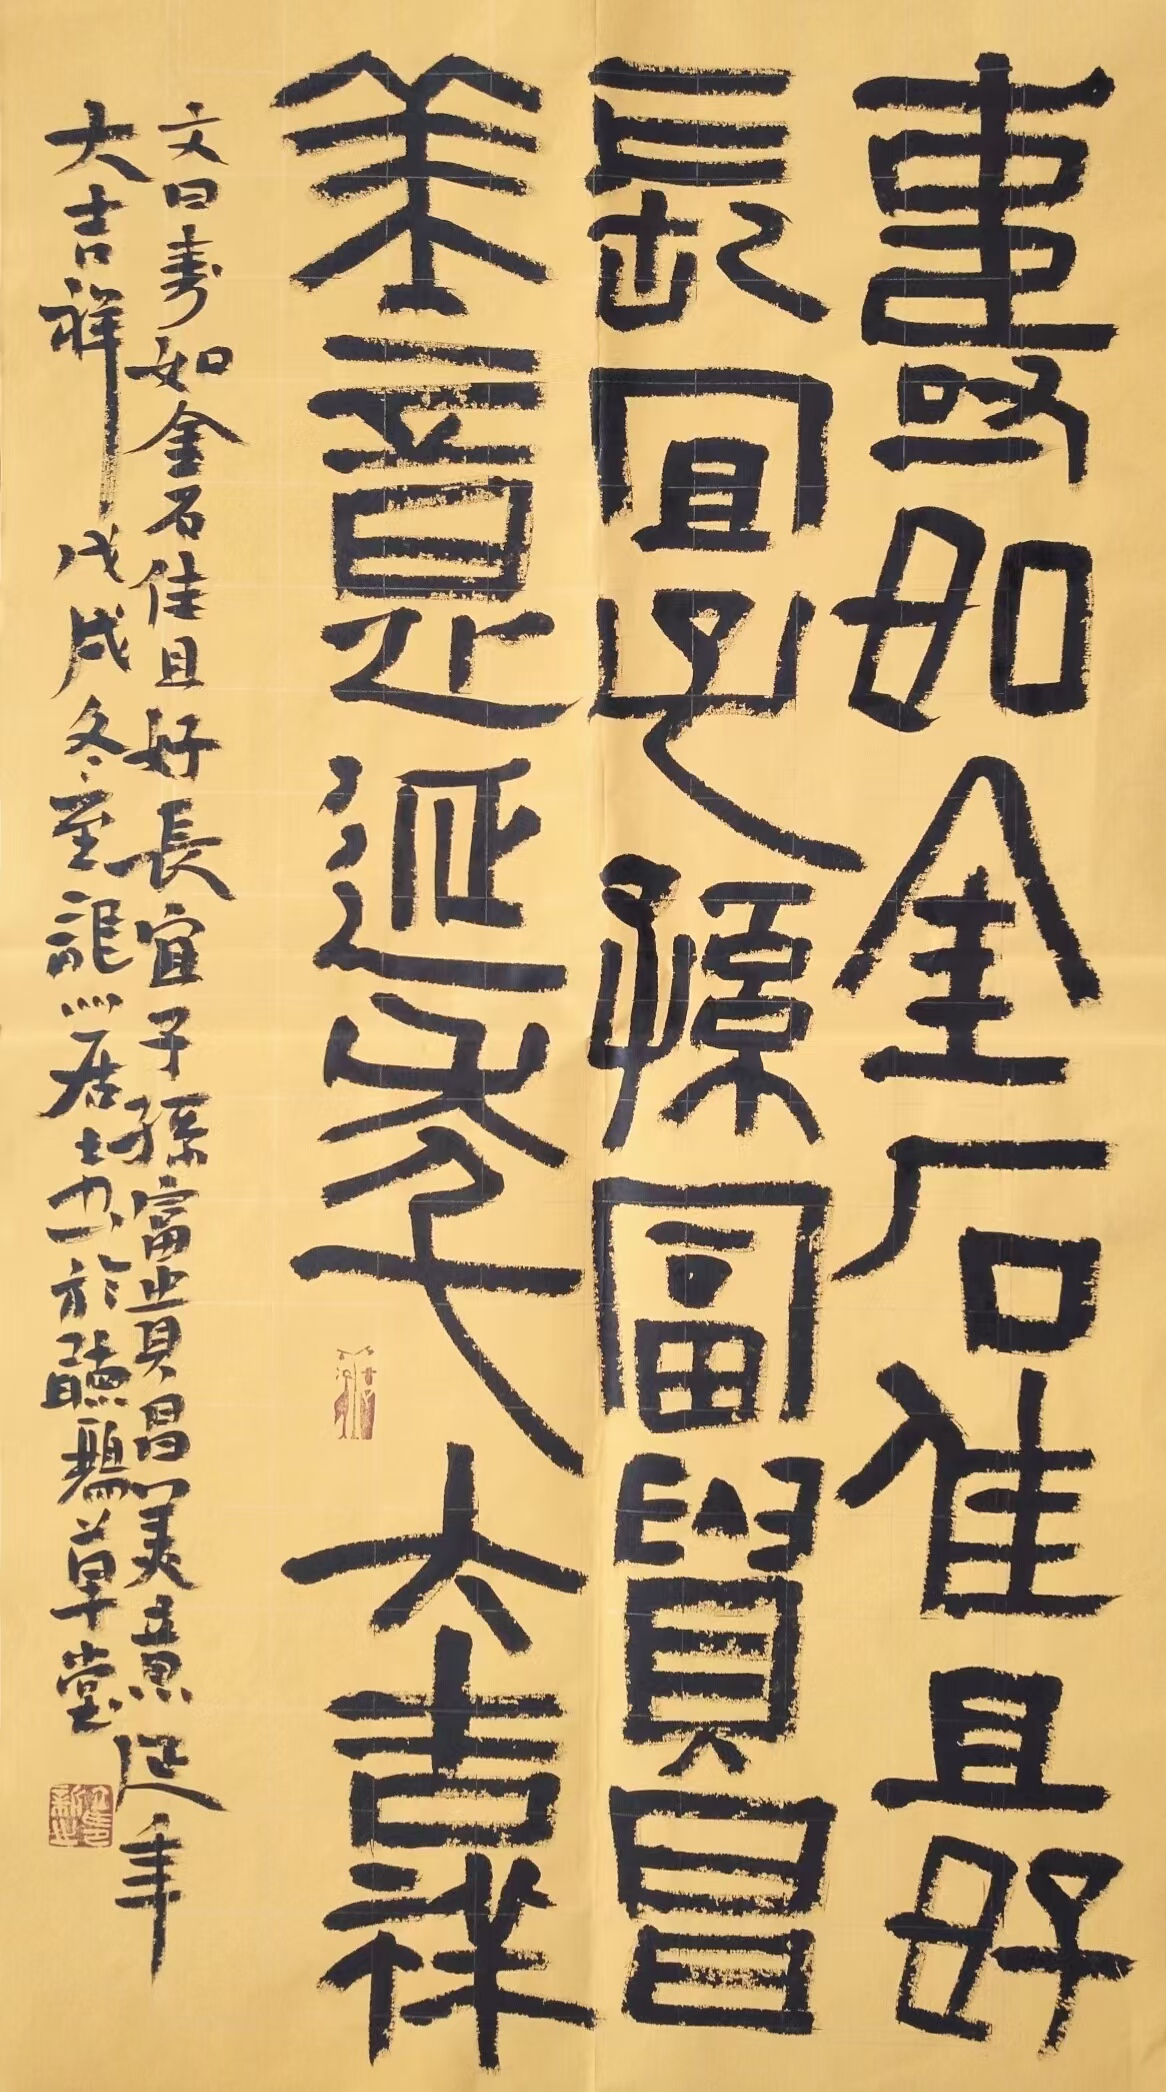 壽如金石佳且好
長宜子孫富貴昌
美意延年大吉祥
文曰壽如金石佳且好長宜子孫富貴昌美意延年
大吉祥戊戌冬至龍居士書於聽鵝草堂